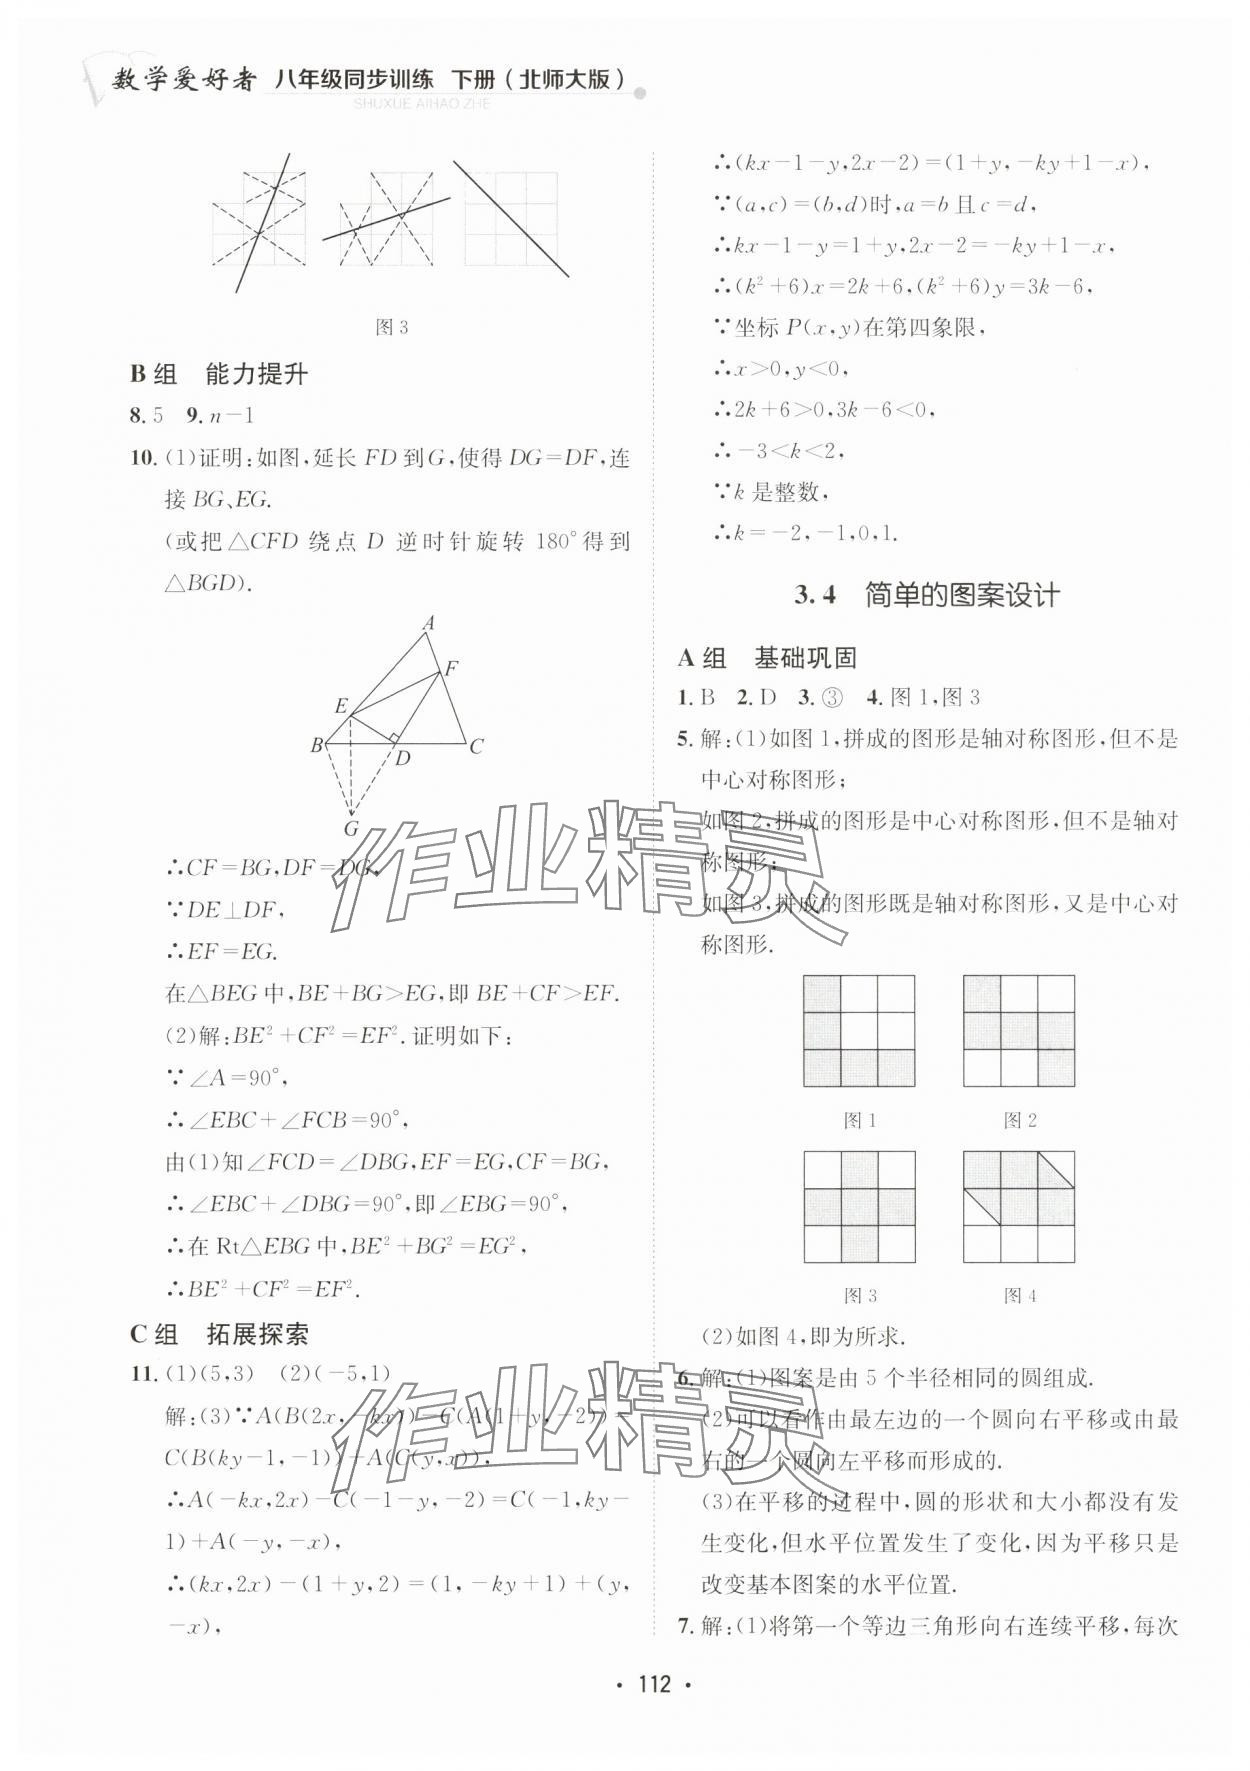 数学爱好者 八年级同步训练 下册(北师大版)
SHUXUE AIHAO ZHE
图3
B组 能力提升
8.5 9.n-1
10.(1)证明:如图,延长FD到G,使得DG=DF,连
接BG、EG.
(或把△CFD绕点D逆时针旋转180°得到
△BGD).
A
F
E
B
D
C
G
∴CF=BG,DF=DG,
∵DE⊥DF,
∴EF=EG.
在△BEG中,BE+BG>EG,即BE+CF>EF.
(2)解:BE²+CF²=EF².证明如下:
∵∠A=90°,
∴∠EBC+∠FCB=90°,
由(1)知∠FCD=∠DBG,EF=EG,CF=BG,
∴∠EBC+∠DBG=90°,即∠EBG=90°,
∴在Rt△EBG中,BE²+BG²=EG²,
∴BE²+CF²=EF².
C组 拓展探索
11.(1)(5,3) (2)(-5,1)
解:(3)∵A(B(2x,-kx))-C(A(1+y,-2))=
C(B(ky-1,-1))+A(C(y,x)),
∴A(-kx,2x)-C(-1-y,-2)=C(-1,ky-
1)+A(-y,-x),
∴(kx,2x)-(1+y,2)=(1,-ky+1)+(y,
-x),
∴(kx-1-y,2x-2)=(1+y,-ky+1-x),
∵(a,c)=(b,d)时,a=b且c=d,
∴kx-1-y=1+y,2x-2=-ky+1-x,
∴(k²+6)x=2k+6,(k²+6)y=3k-6,
∵坐标P(x,y)在第四象限,
∴x>0,y<0,
∴2k+6>0,3k-6<0,
∴-3<k<2,
∵k是整数,
∴k=-2,-1,0,1.
3.4 简单的图案设计
A组 基础巩固
1.B 2.D 3.③ 4.图1,图3
5.解:(1)如图1,拼成的图形是轴对称图形,但不是
中心对称图形;
如图2,拼成的图形是中心对称图形,但不是轴对
称图形;
如图3,拼成的图形既是轴对称图形,又是中心对
称图形.
图1 图2
图3 图4
(2)如图4,即为所求.
6.解:(1)图案是由5个半径相同的圆组成.
(2)可以看作由最左边的一个圆向右平移或由最
右的一个圆向左平移而形成的.
(3)在平移的过程中,圆的形状和大小都没有发
生变化,但水平位置发生了变化,因为平移只是
改变基本图案的水平位置.
7.解:(1)将第一个等边三角形向右连续平移,每次
·112·
作业精灵
作业精灵